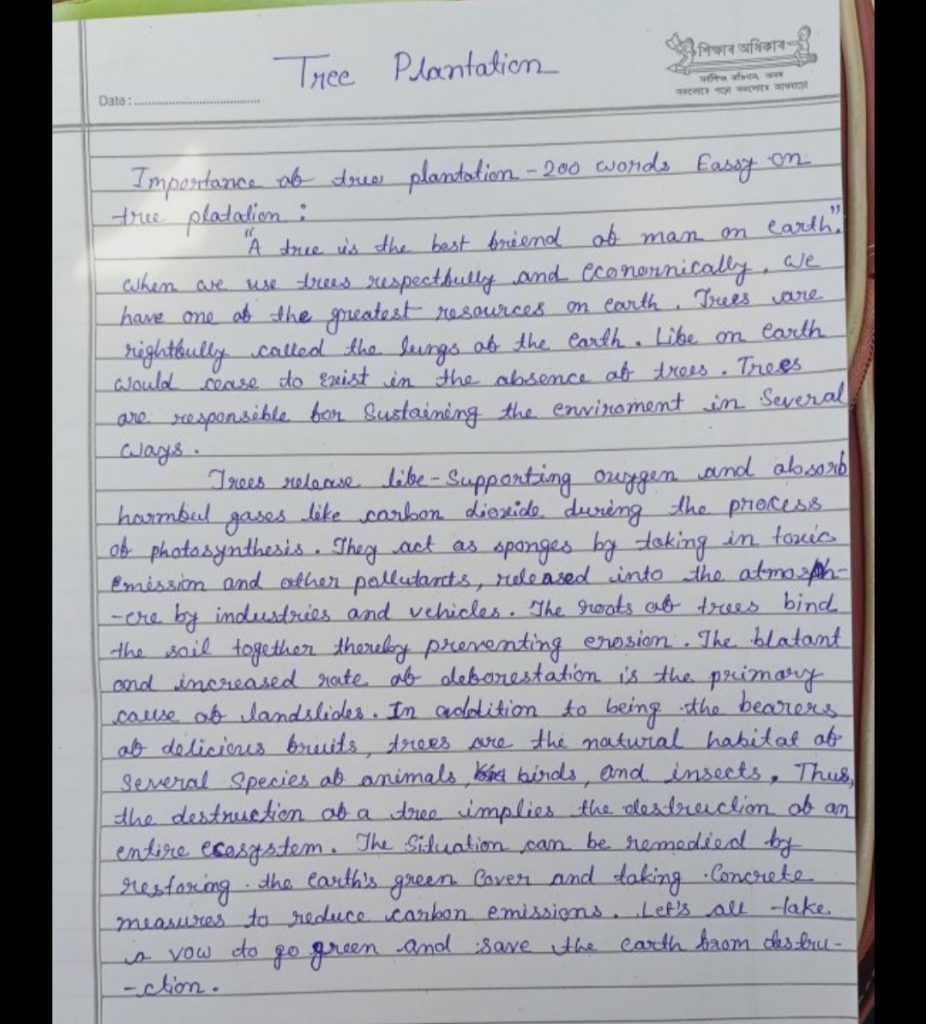 Tree Plantation
শিক্ষাৰ অধিকাৰ
সৰ্বশিক্ষা অভিযান, অসম
সকলোৱে পঢ়ো সকলোৱে আগবাঢ়ো
Date : ........................................
Importance of tree plantation - 200 words Eassy on
tree platation :
"A tree is the best friend of man on earth".
When we use trees respectfully and economically, we
have one of the greatest resources on earth. Trees are
rightfully called the lungs of the earth. Life on earth
would cease to exist in the absence of trees. Trees
are responsible for Sustaining the enviroment in Several
ways.
Trees release life-Supporting oxygen and absorb
harmful gases like carbon dioxide during the process
of photosynthesis. They act as sponges by taking in toxic
emission and other pollutants, released into the atmosph-
-ere by industries and vehicles. The roots of trees bind
the soil together thereby preventing erosion. The blatant
and increased rate of deforestation is the primary
cause of landslides. In addition to being the bearers
of delicious fruits, trees are the natural habitat of
Several Species of animals, birds, and insects. Thus,
the destruction of a tree implies the destruction of an
entire ecosystem. The Situation can be remedied by
restoring the earth's green Cover and taking Concrete
measures to reduce carbon emissions. Let's all take
a vow to go green and save the earth from destru-
-ction.